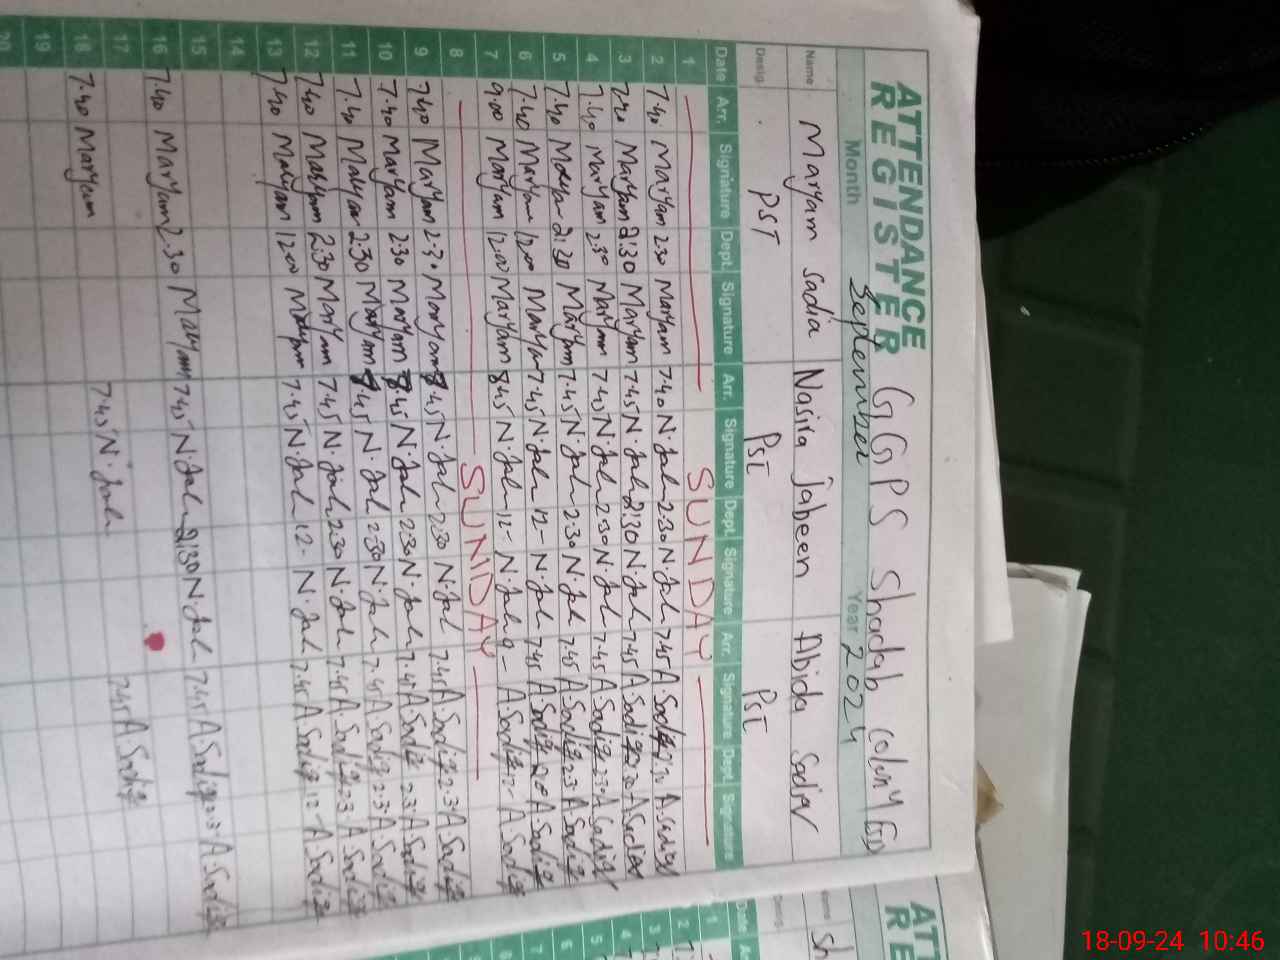 ATTENDANCE REGISTER
GGPS Shadab colony
Month September Year 2024
Name Maryam Sadia Nasira Jabeen Abida
Desig. PST PST PST
Date Arr. Signature Dept. Signature Arr. Signature Dept. Signature Arr. Signature Dept. Signature
1 SUNDAY
2 7.40 Maryam 2.30 Maryam 7.40 N.Jab 2.30 N.Jab 7.45 A.Sadiq A.Sadiq
3 7.40 Maryam 2:30 Maryam 7.45 N.Jab 2:30 N.Jab 7.45 A.Sadiq A.Sadiq
4 7.40 Maryam 2.30 Maryam 7.45 N.Jab 2.30 N.Jab 7.45 A.Sadiq 2.30 A.Sadiq
5 7.40 Maryam 2:30 Maryam 7.45 N.Jab 2.30 N.Jab 7.45 A.Sadiq 2.3 A.Sadiq
6 7.40 Maryam 12.00 Maryam 7.45 N.Jab 12- N.Jab 7.45 A.Sadiq A.Sadiq
7 9.00 Maryam 12.00 Maryam 8.45 N.Jab 12- N.Jab 9- A.Sadiq 12- A.Sadiq
8 SUNDAY
9 7.40 Maryam 2.30 Maryam 8.45 N.Jab 2.30 N.Jab 7.45 A.Sadiq 2.3 A.Sadiq
10 7.40 Maryam 2.30 Maryam 8.45 N.Jab 2.30 N.Jab 7.45 A.Sadiq 2.3 A.Sadiq
11 7.40 Maryam 2:30 Maryam 8.45 N.Jab 2.30 N.Jab 7.45 A.Sadiq 2.3 A.Sadiq
12 7.40 Maryam 2.30 Maryam 7.45 N.Jab 2.30 N.Jab 7.45 A.Sadiq 2.3 A.Sadiq
13 7.40 Maryam 12.00 Maryam 7.45 N.Jab 12- N.Jab 7.45 A.Sadiq 12- A.Sadiq
14
15
16 7.40 Maryam 2.30 Maryam 7.45 N.Jab 2:30 N.Jab 7.45 A.Sadiq 2.3 A.Sadiq
17
18 7.40 Maryam 7.45 N.Jab 7.45 A.Sadiq
19
20
18-09-24 10:46